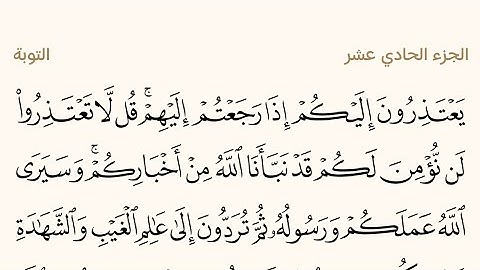 الجزء الحادي عشر
التوبة
يَعْتَذِرُونَ إِلَيْكُمْ إِذَا رَجَعْتُمْ إِلَيْهِمْ ۚ قُل لَّا تَعْتَذِرُوا۟
لَن نُّؤْمِنَ لَكُمْ قَدْ نَبَّأَنَا ٱللَّهُ مِنْ أَخْبَارِكُمْ ۚ وَسَيَرَى
ٱللَّهُ عَمَلَكُمْ وَرَسُولُهُۥ ثُمَّ تُرَدُّونَ إِلَىٰ عَـٰلِمِ ٱلْغَيْبِ وَٱلشَّهَـٰدَةِ